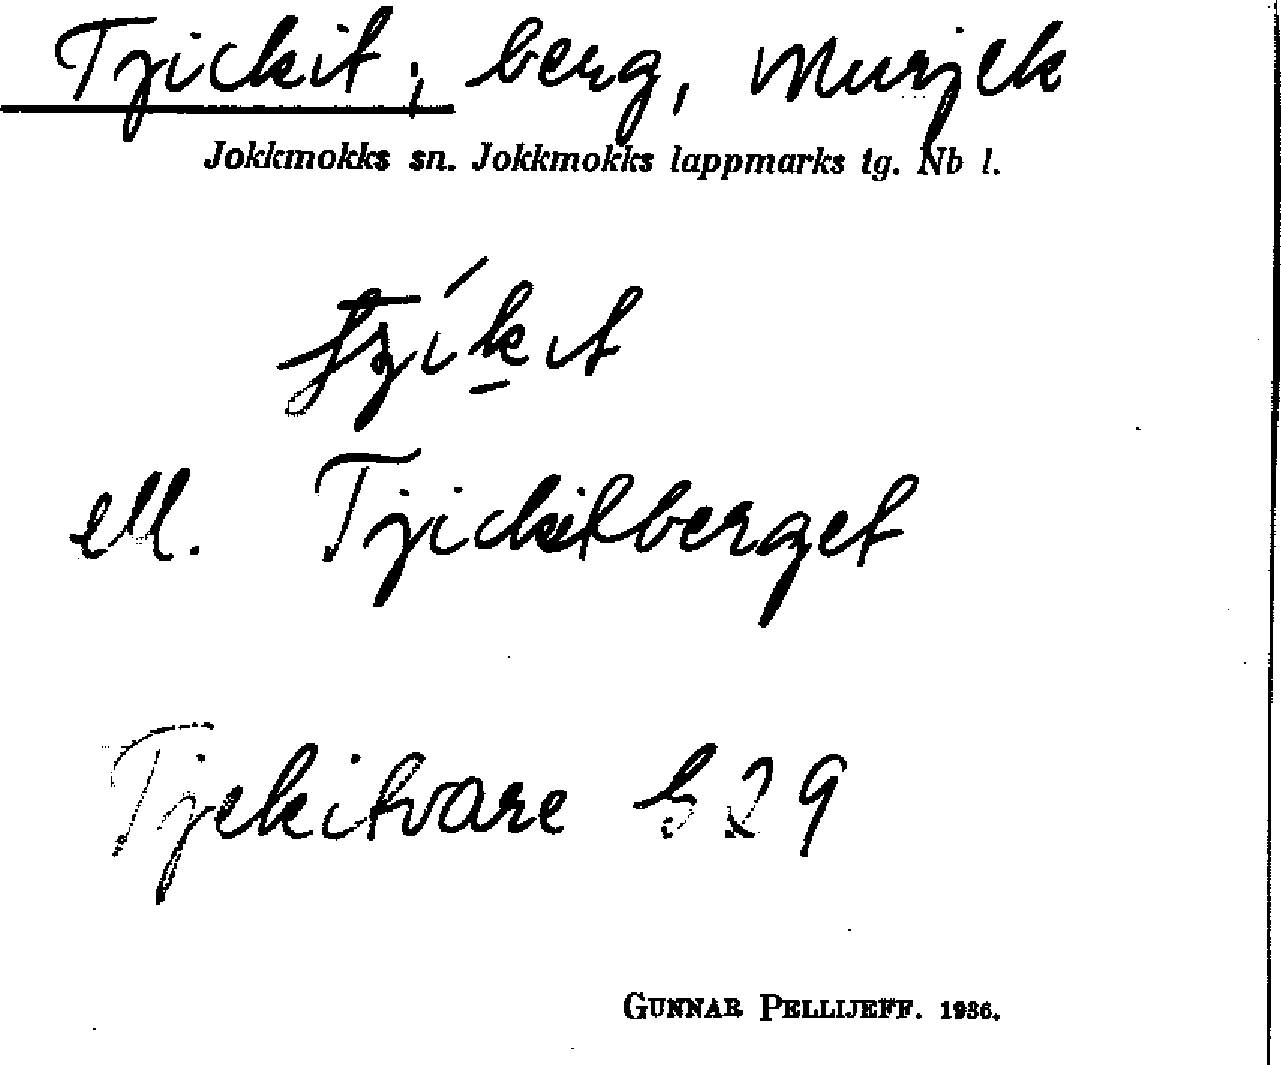 Tjickit, berg, Murjek
Jokkmokks sn. Jokkmokks lappmarks tg. Nb l.
ell. Tjickitberget
Tjekitvare S 29
GUNNAR PELLIJEFF. 1936.